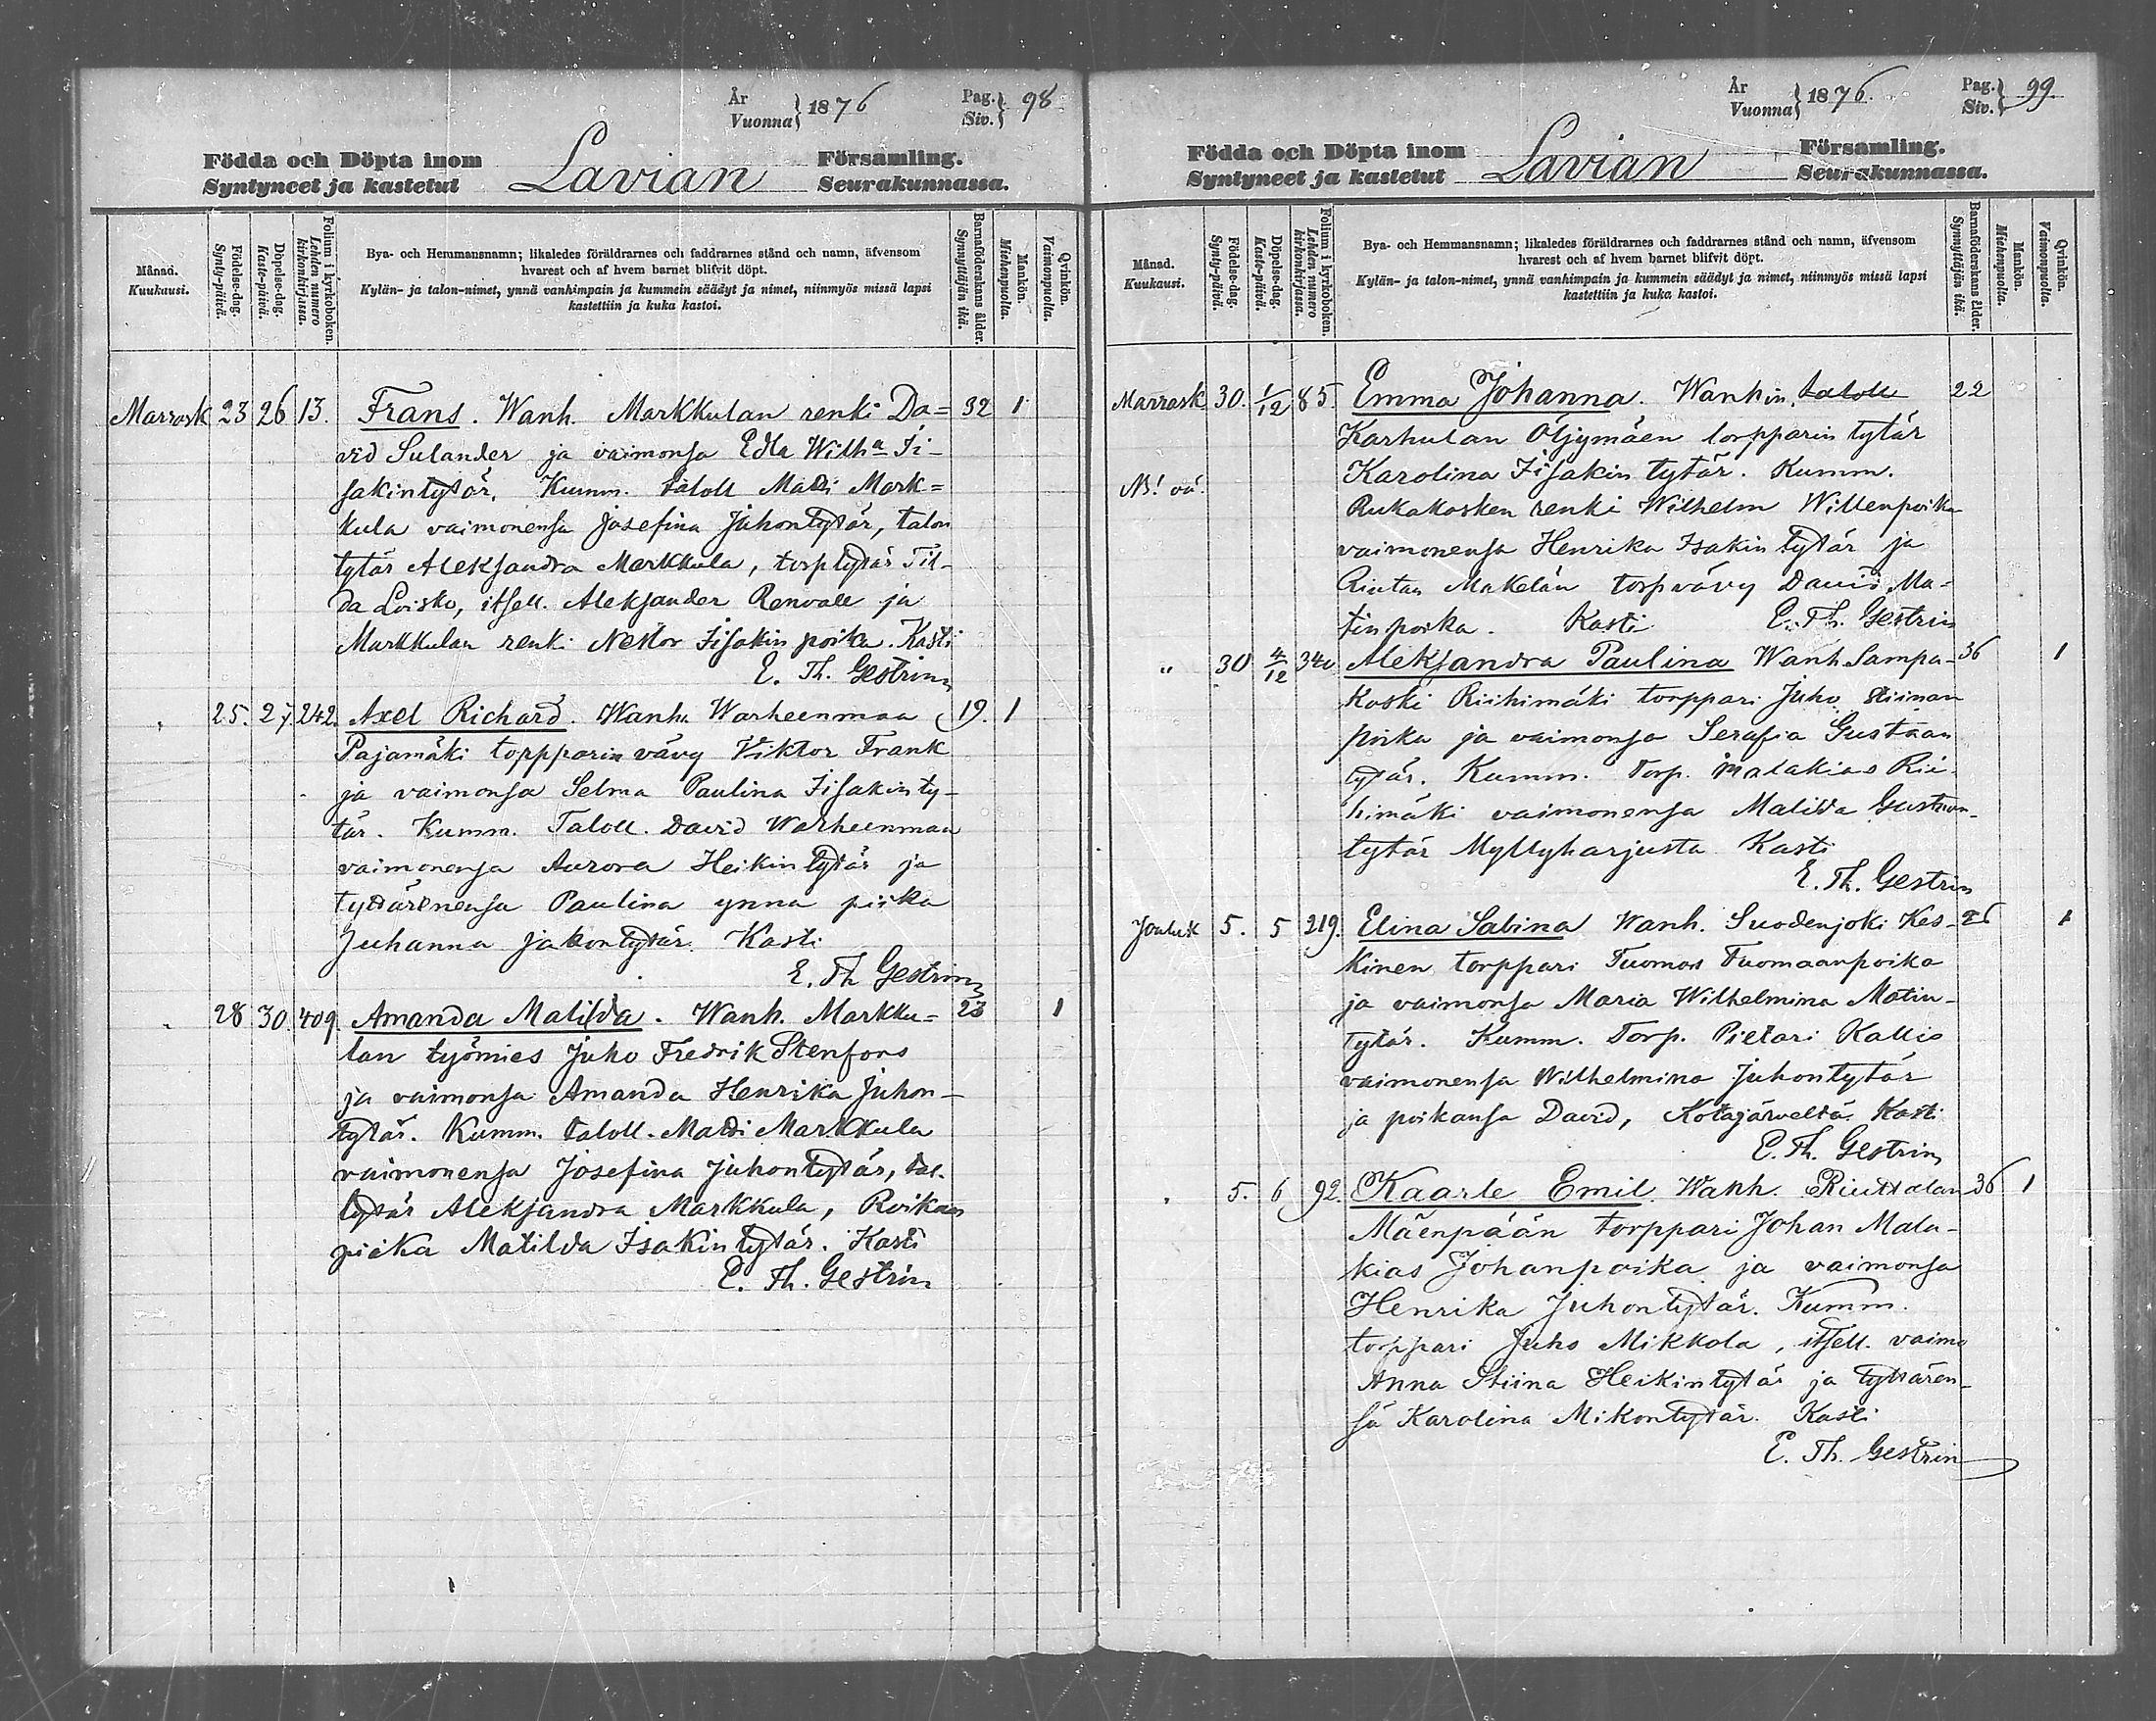 År
Vuonna } 1876
Pag.
Siv. } 98
Födda och Döpta inom
Syntyneet ja kastetut
Lavian
Församling.
Seurakunnassa.
Månad.
Kuukausi.
Födelse-dag.
Synty-päivä.
Döpelse-dag.
Kaste-päivä.
Folium i kyrkoboken.
Lehden numero kirkonkirjassa.
Bya- och Hemmansnamn; likaledes föräldrarnes och faddrarnes stånd och namn, äfvensom
hvarest och af hvem barnet blifvit döpt.
Kylän- ja talon-nimet, ynnä vanhimpain ja kummein säädyt ja nimet, niinmyös missä lapsi
kastettiin ja kuka kastoi.
Barnaföderskans ålder.
Synnyttäjän ikä.
Mankön.
Miehenpuolia.
Qvinkön.
Vaimonpuolia.
Marrask 23 26 13. Frans. Wanh. Markkulan renki Da= 32 1
vid Sulander ja vaimonsa Edla Wilha Ii-
sakintytär. Kumm. taloll Matti Mark=
kula vaimonensa Josefina Juhontytär, talon
tytär Aleksandra Markkula, torp tytär Til-
da Loisko, itsell. Aleksander Renvall ja
Markkulan renki Nestor Iisakin poika. Kasti
E. Th. Gestrin
" 25. 27. 242. Axel Richard. Wanh. Warheenmaa 19. 1
Pajamäki torpparin vävy Viktor Frank
ja vaimonsa Selma Paulina Iisakinty-
tär. Kumm. Taloll. David Warheenmaa
vaimonensa Aurora Heikintytär ja
tyttärenensa Paulina ynna piika
Juhanna Jakontytär. Kasti
E. Th Gestrin
" 28 30. 409. Amanda Matilda. Wanh. Markku= 23 1
lan työmies Juho Fredrik Stenfors
ja vaimonsa Amanda Henrika Juhon-
tytär. Kumm. taloll. Matti Markkula
vaimonensa Josefina Juhontytär, tal.
tytär Aleksandra Markkula, Roikan
piika Matilda Isakintytär. Kasti
E. Th. Gestrin
År
Vuonna } 1876.
Pag.
Siv. } 99
Födda och Döpta inom
Syntyneet ja kastetut
Lavian
Församling.
Seurakunnassa.
Månad.
Kuukausi.
Födelse-dag.
Synty-päivä.
Döpelse-dag.
Kaste-päivä.
Folium i kyrkoboken.
Lehden numero kirkonkirjassa.
Bya- och Hemmansnamn; likaledes föräldrarnes och faddrarnes stånd och namn, äfvensom
hvarest och af hvem barnet blifvit döpt.
Kylän- ja talon-nimet, ynnä vanhimpain ja kummein säädyt ja nimet, niinmyös missä lapsi
kastettiin ja kuka kastoi.
Barnaföderskans ålder.
Synnyttäjän ikä.
Mankön.
Miehenpuolia.
Qvinkön.
Vaimonpuolia.
Marrask 30. 1/12 85. Emma Johanna. Wanhin. taloll 22
Karhulan Öljymäen torpparin tytär
Karolina Iisakin tytär. Kumm.
Rukakosken renki Wilhelm Willenpoika
vaimonensa Henrika Isakin tytär ja
Mäkelän torpvävy David Ma-
tinpoika. Kasti E. Th. Gestrin
" 30 4/12 340 Aleksandra Paulina Wanh. Sampa- 36 1
koski Riihimäki torppari Juho Stiinan
poika ja vaimonsa Serafia Gustaan
tytär. Kumm. Torp. Malakias Rii-
himäki vaimonensa Matilda Gustaan-
tytär Myllyharjusta Kasti
E. Th. Gestrin
Jouluk 5. 5 219. Elina Sabina Wanh. Suodenjoki Kes- 26 1
kinen torppari Tuomas Tuomaanpoika
ja vaimonsa Maria Wilhelmina Matin-
tytär. Kumm. Torp. Pietari Kallio
vaimonensa Wilhelmina Juhontytär
ja poikansa David, Kotajärveltä. Kasti
E. Th. Gestrin
" 5. 6 92. Kaarle Emil. Wanh. Riuttalan 36 1
Mäenpään torppari Johan Mala-
kias Johanpoika ja vaimonsa
Henrika Juhontytär. Kumm.
torppari Juho Mikkola, itsell. vaimo
Anna Stiina Heikintytär ja tyttären-
sä Karolina Mikontytär. Kasti
E. Th. Gestrin